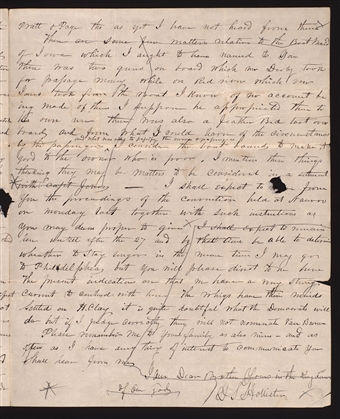 Pratt & Page &c as yet I have not heard from them
There are some few matters relative to the Boat Maid
of Iowa which I ought to have named to you
There was two guns on board which Mr Doty took
for passage money while on Red River which
Jones took from the Boat I know of no account be
ing made of them I suppose he appropriated them to
his own use there was also a feather bed lost over
board and from what I could learn of the circumstances
by the passengers I consider the boat bound to make it
good to the owner who is poor, I mention these things
thinking they may be matters to be considered in a settlement
with Capt Jones — I shall expect to hear from
you the proceedings of the Convention held at Nauvoo
on monday last together with such instruction as
you may deem proper to give I shall expect to remain
here untill after the 27 and by that time be able to determine
wheather to stay longer in the mean time I may go
to Philadelphia but you will please direct to me here
The present indications are that Mr
Calvert to contend with him The Whigs have their minds
settled on H. Clay, it is quite doubtful what the Democrats will
do but if I judge correctly they will not nominate Van Buren
Please remember me to your family as also mine - and as
often as I have any thing of interest to communicate you
shall hear from me
I am Dear Brother Yours in the Kingdom
of our God
D. S. Hollister